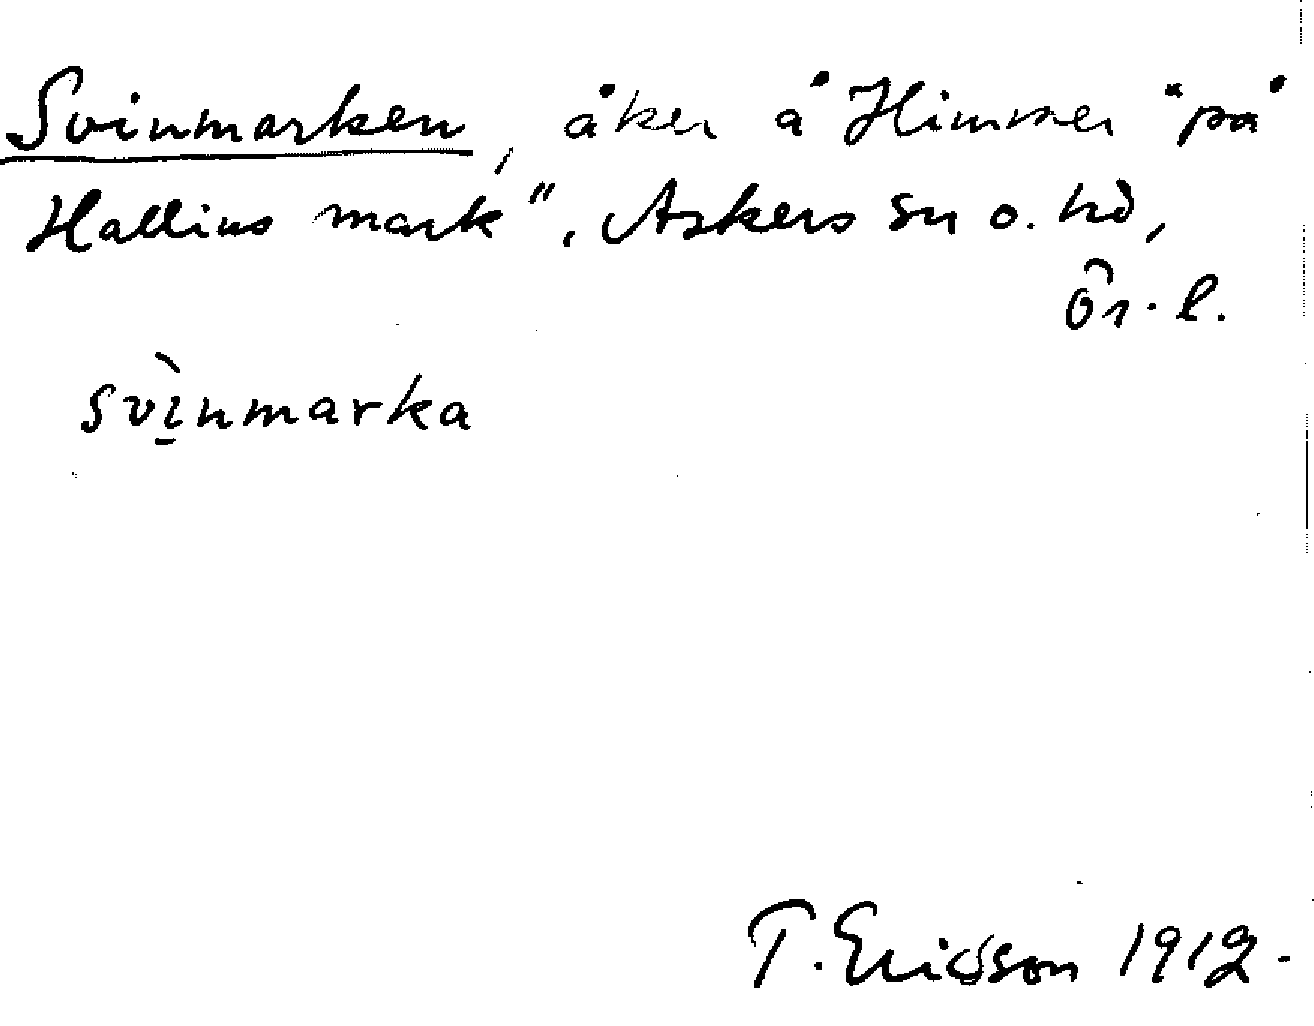 Svinmarken, åker å Himmer "på
Hallins mark", Askers sn o. hd,
Ör. l.
svì̱nmarka
T. Ericsson 1912.